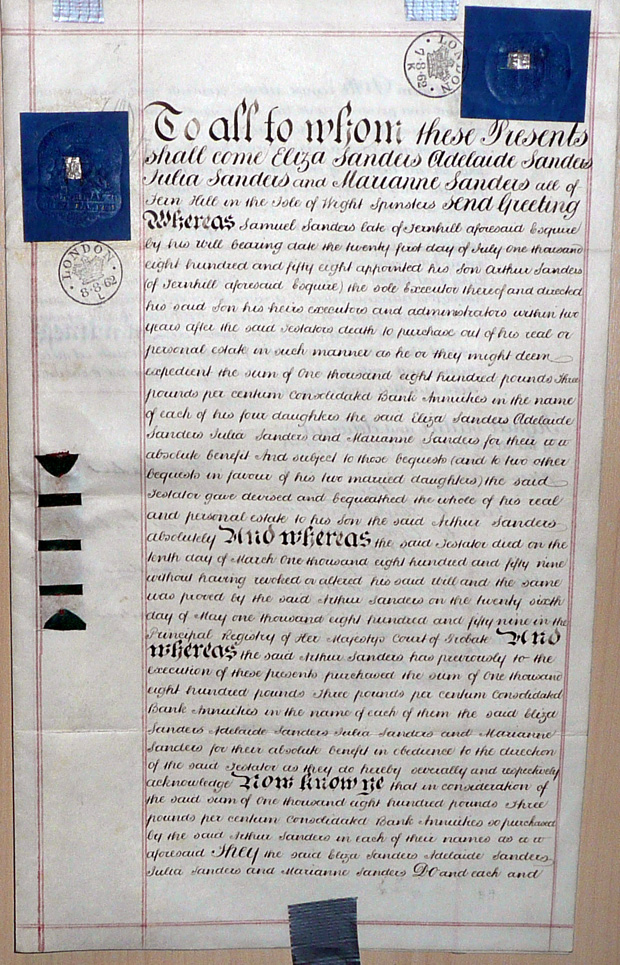 LONDON
7·8·62
K
LONDON
8·8·62
L
To all to whom these Presents
shall come Eliza Sanders Adelaide Sanders
Julia Sanders and Marianne Sanders all of
Fern Hill in the Isle of Wight Spinsters Send Greeting
Whereas Samuel Sanders late of Fernhill aforesaid Esquire
by his Will bearing date the twenty first day of July One thousand
eight hundred and fifty eight appointed his Son Arthur Sanders
(of Fernhill aforesaid Esquire) the sole Executor thereof and directed
his said Son his heirs executors and administrators within two
years after the said Testators death to purchase out of his real or
personal estate in such manner as he or they might deem
expedient the sum of One thousand eight hundred pounds Three
pounds per centum Consolidated Bank Annuities in the name
of each of his four daughters the said Eliza Sanders Adelaide
Sanders Julia Sanders and Marianne Sanders for their
absolute benefit And subject to those bequests (and to two other
bequests in favour of his two married daughters) the said
Testator gave devised and bequeathed the whole of his real
and personal estate to his son the said Arthur Sanders
absolutely And whereas the said Testator died on the
tenth day of March One thousand eight hundred and fifty nine
without having revoked or altered his said Will and the same
was proved by the said Arthur Sanders on the twenty sixth
day of May one thousand eight hundred and fifty nine in the
Principal Registry of Her Majestys Court of Probate And
whereas the said Arthur Sanders has previously to the
execution of these presents purchased the sum of One thousand
eight hundred pounds Three pounds per centum Consolidated
Bank Annuities in the name of each of them the said Eliza
Sanders Adelaide Sanders Julia Sanders and Marianne
Sanders for their absolute benefit in obedience to the direction
of the said Testator as they do hereby severally and respectively
acknowledge Now know ye that in consideration of
the said sum of One thousand eight hundred pounds Three
pounds per centum Consolidated Bank Annuities so purchased
by the said Arthur Sanders in each of their names as
aforesaid They the said Eliza Sanders Adelaide Sanders
Julia Sanders and Marianne Sanders Do and each and